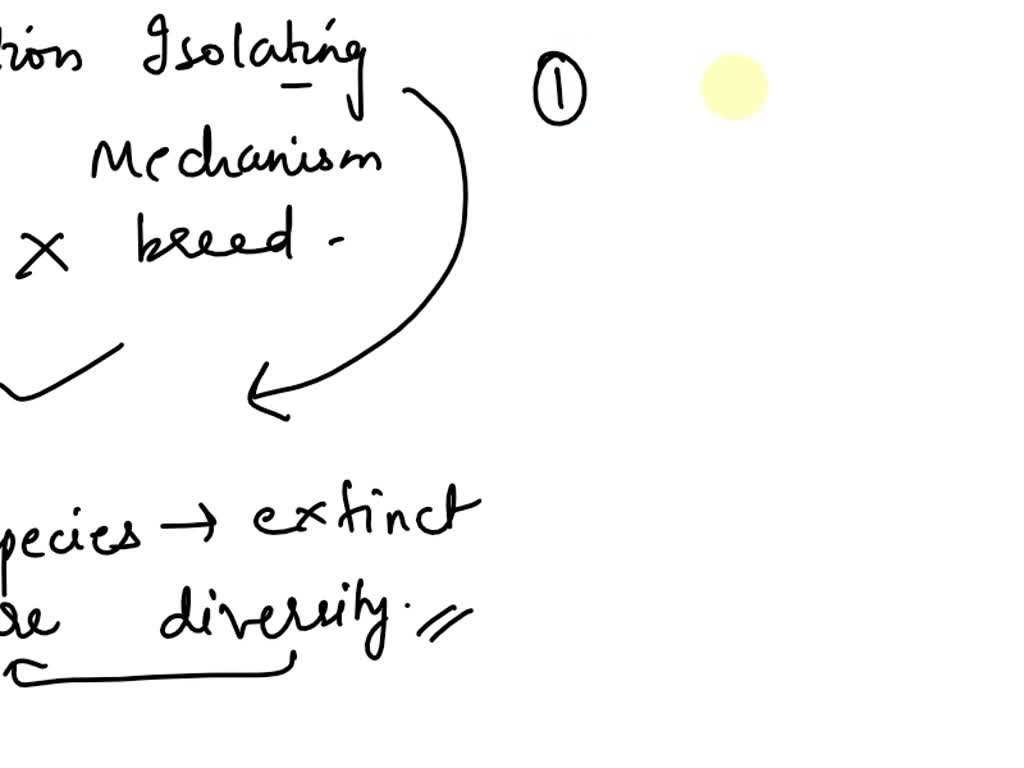 tion Isolating
Mechanism
X breed -
pecies → extinct
re diversity.
1